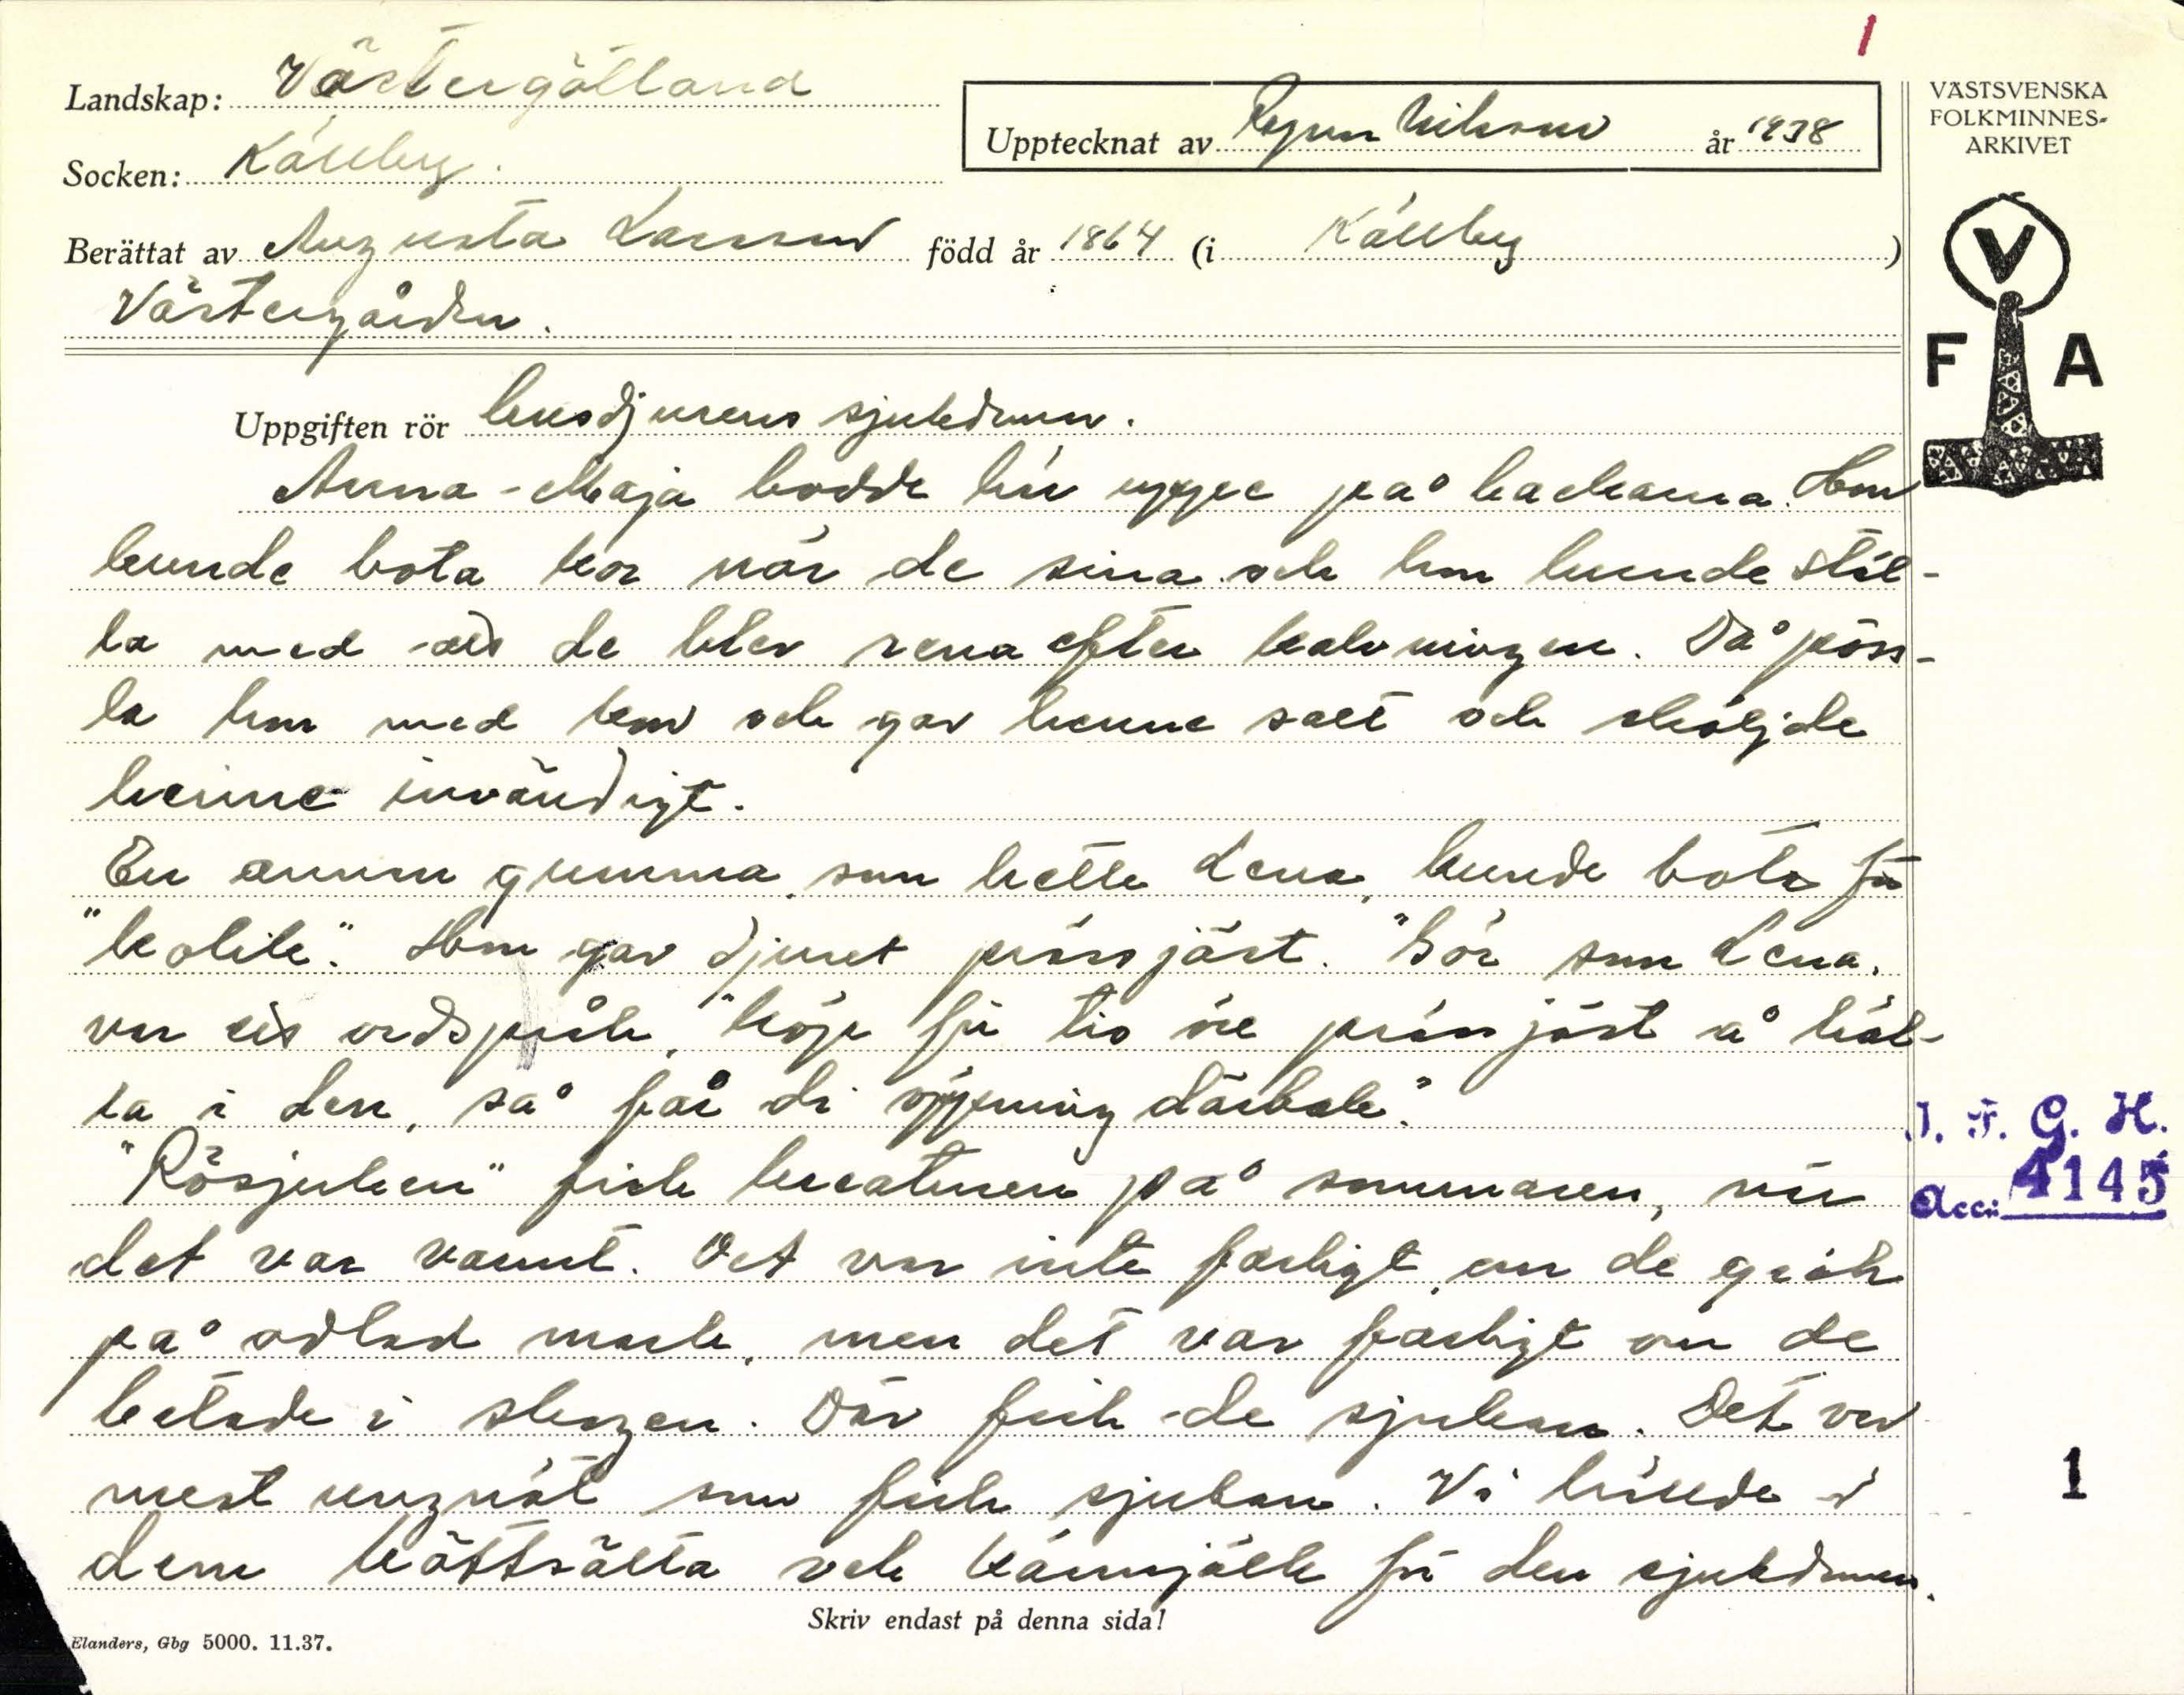 1
Landskap: Västergötland
Upptecknat av Ragnar Nilsson år 1938
VÄSTSVENSKA
FOLKMINNES-
ARKIVET
Socken: Källby.
Berättat av Augusta Larsson född år 1864 (i Källby)
Västergården.
V
F A
Uppgiften rör husdjurens sjukdomar.
Anna-Maja bodde här uppe på backarna. Hon
kunde bota kor när de sina och hon kunde stäl-
la med att de blev rena efter kalvningen. Då pöss-
la hon med kon och gav henne salt och sköljde
henne invändigt.
En annan gumma, som hette Lena, kunde bota för
"kolik". Hon gav djuret pressjäst. "Gör som Lena,
var ett ordspråk, "köp för tio öre pressjäst å häl-
la i den, så får di öppning därbak."
"Rösjukan" fick kreaturen på sommaren, när
det var varmt. Det var inte farligt, om de gick
på odlad mark, men det var farligt om de
betade i skogen. Där fick de sjukan. Det var
mest ungnöt som fick sjukan. Vi hällde i
dem kättsälta och kärnmjölk för den sjukdomen.
I. F. G. H.
Acc: 4145
1
Skriv endast på denna sida!
Elanders, Gbg 5000. 11.37.